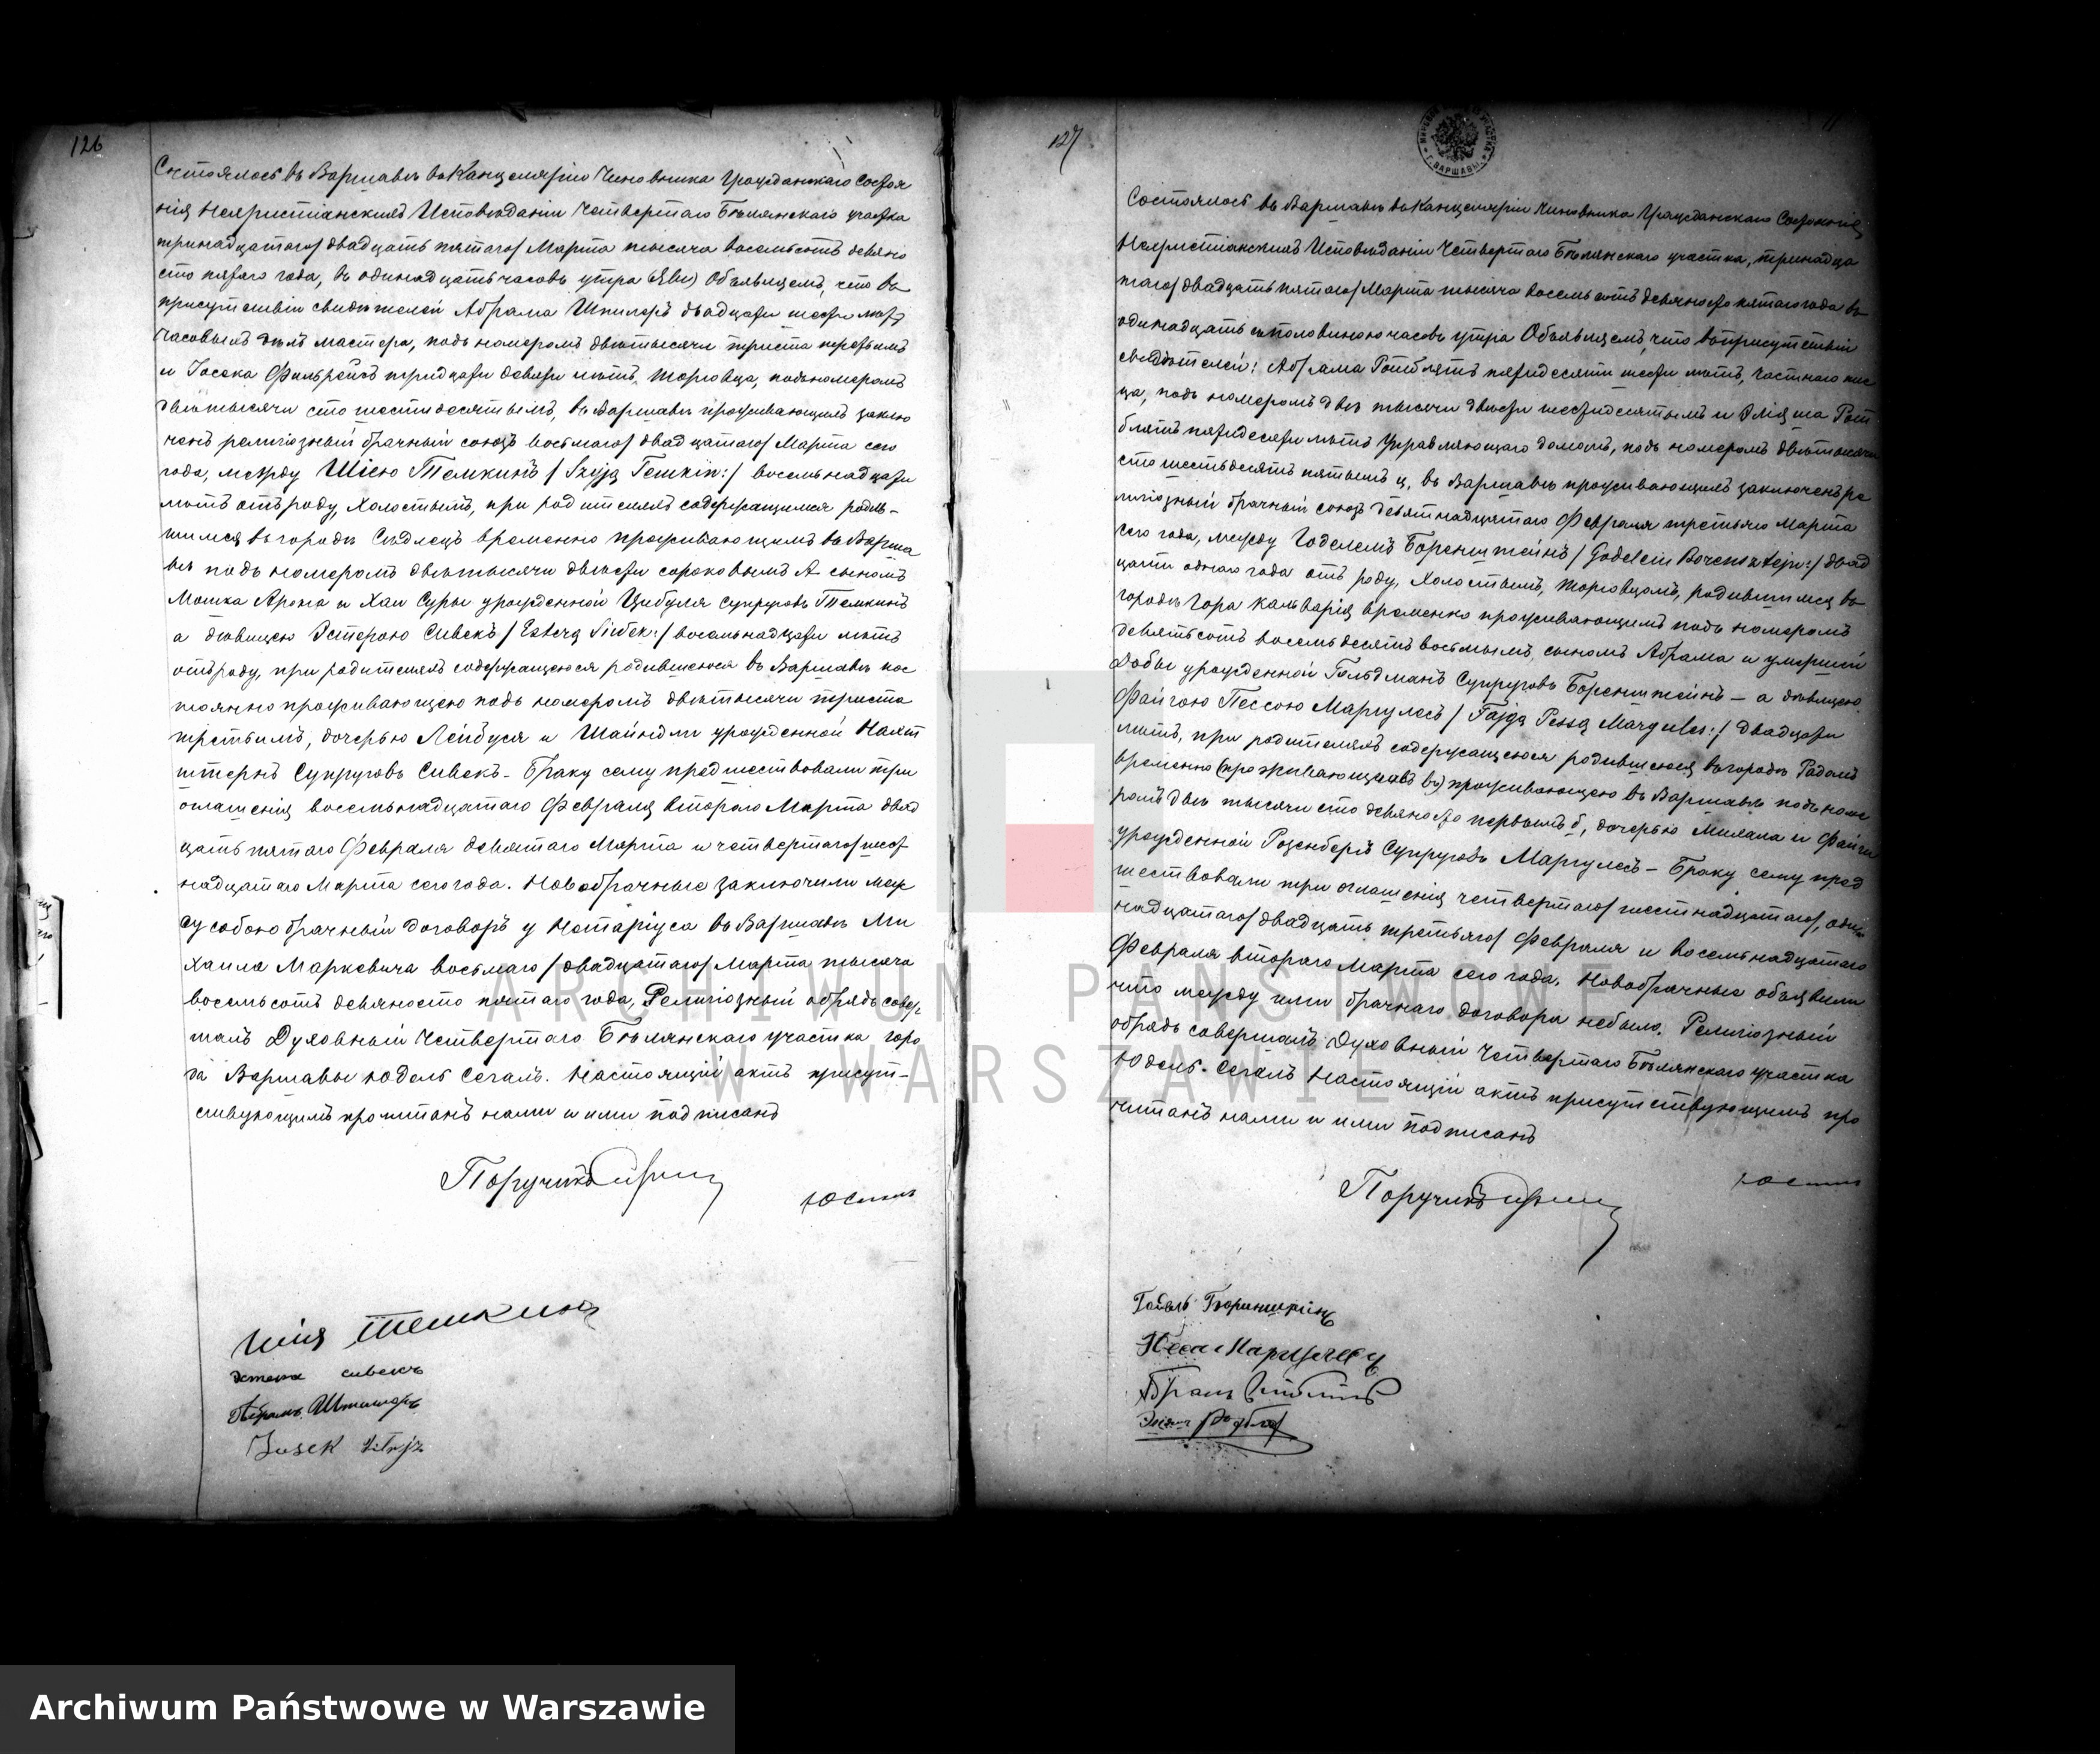 126
Состоялось въ Варшавѣ въ Канцеляріи Чиновника Гражданскаго Состоя
нія Нехристіанскихъ Исповѣданій Четвертаго Бѣлянскаго участка
тринадцатаго/двадцать пятаго/Марта тысяча восемьсотъ девяно
сто пятаго года, въ одинадцать часовъ утра Объявляемъ, что въ
присутствіи свидѣтелей Абрама двадцати шести лѣтъ
часовыхъ дѣлъ мастера, подъ номеромъ двѣтысячи триста первымъ
и Іосека тридцати девяти лѣтъ, торговца, подъ номеромъ
двѣтысячи сто шестидесятымъ, въ Варшавѣ проживающихъ заклю
ченъ религіозный брачный союзъ восьмаго/двадцатаго/Марта сего
года, между Шіею Темкинъ /Szyja Temkin:/ восемьнадцати
лѣтъ отъ роду, холостымъ, при родителяхъ содержащимся родив-
шимся въ городѣ Сѣдлецъ временно проживающимъ въ Варша
вѣ подъ номеромъ двѣтысячи двѣсти сороковымъ А сыномъ
Мошка Арона и Хаи Суры урожденной Цибуля супруговъ Темкинъ
а дѣвицею Эстерою Сивекъ /Estera Siwek:/ восемьнадцати лѣтъ
отъ роду, при родителяхъ содержащеюся родившеюся въ Варшавѣ пос
тоянно проживающею подъ номеромъ двѣтысячи триста
третьимъ, дочерью Лейбуся и Шайндли урожденной Нахт
штернъ Супруговъ Сивекъ - Браку сему предшествовали три
оглашенія восемьнадцатаго Февраля втораго Марта двад
цать пятаго Февраля девятаго Марта и четвертаго/шест
надцатаго Марта сего года. Новобрачные заключили меж
ду собою брачный договоръ у Нотаріуса въ Варшавѣ Ми
хаила Маркевича восьмаго/двадцатаго/Марта тысяча
восемьсотъ девяносто пятаго года, Религіозный обрядъ совер
шалъ Духовный Четвертаго Бѣлянскаго участка горо
да Варшавы Юдель Сегалъ. Настоящій актъ присут-
ствующимъ прочитанъ нами и ими подписанъ
Поручикъ
Шія Темкинъ
Эстера Сивекъ
Абрамъ
Jusek
127
Состоялось въ Варшавѣ въ Канцеляріи Чиновника Гражданскаго Состоянія
Нехристіанскихъ Исповѣданій Четвертаго Бѣлянскаго участка, тринадца
таго/двадцать пятаго/Марта тысяча восемьсотъ девяносто пятаго года въ
одинадцать съ половиною часовъ утра Объявляемъ, что въ присутствіи
свидѣтелей: Абрама Ротблятъ пятидесяти шести лѣтъ, частнаго пис
ца, подъ номеромъ двѣ тысячи двѣсти шестидесятымъ и Эліяша Рот
блятъ пятидесяти лѣтъ управляющаго домомъ, подъ номеромъ двѣтысячи
сто шестьдесятъ пятымъ ц, въ Варшавѣ проживающихъ заключенъ ре
лигіозный брачный союзъ девятнадцатаго Февраля третьяго Марта
сего года, между Годелемъ Боренштейнъ /Godelem Borensztejn:/ двад
цати одного года отъ роду, холостымъ, торговцомъ, родившимся въ
городѣ Гора Кальварія временно проживающимъ подъ номеромъ
девятьсотъ восемьдесятъ восьмымъ, сыномъ Абрама и умершей
Добы урожденной Гольдманъ Супруговъ Боренштейнъ - а дѣвицею
Файгою Пессою Маргулесъ /Fajga Pessa Margules:/ двадцати
лѣтъ, при родителяхъ содержащеюся родившеюся въ городѣ Радомъ
временно (проживающихъ въ) проживающею въ Варшавѣ подъ номе
ромъ двѣ тысячи сто девяносто первымъ б, дочерью Михала и Файги
урожденной Розенбергъ Супруговъ Маргулесъ - Браку сему пред
шествовали три оглашенія четвертаго/шестнадцатаго/, один
надцатаго/двадцать третьяго/Февраля и восемьнадцатаго
Февраля втораго Марта сего года. Новобрачные объявили
что между ими брачнаго договора небыло. Религіозный
обрядъ совершалъ Духовный Четвертаго Бѣлянскаго участка
Юдель Сегалъ Настоящій актъ присутствующимъ про
читанъ нами и ими подписанъ
Поручикъ
Годель Боринштейнъ
Маргулесъ
ARCHIWUM PAŃSTWOWE
W WARSZAWIE
Archiwum Państwowe w Warszawie